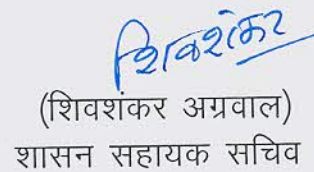 शिवशंकर
(शिवशंकर अग्रवाल)
शासन सहायक सचिव